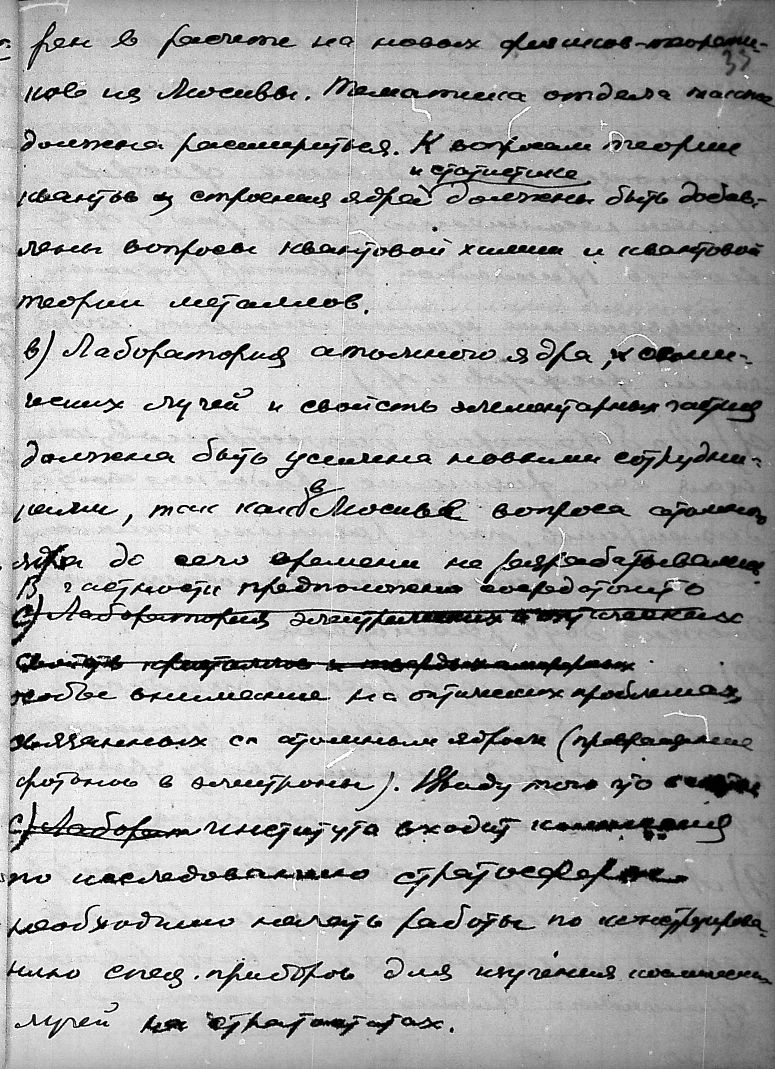 рен в расчете на новых физиков-теорети-
33
ков из Москвы. Тематика отдела также
должна расшириться. К вопросам теории
и статистике
квантов и строения ядра должны быть добав-
лены вопросы квантовой химии и квантовой
теории металлов.
в) Лаборатория атомного ядра, косми-
ческих лучей и свойств элементарных частиц
должна быть усилена новыми сотрудни-
в
ками, так как Москве вопроса атомного
ядра до сего времени не разрабатывались
В частности предположено сосредоточить
с) Лаборатория электрических и оптических
свойств кристаллов и твердых аморфных
особое внимание на оптических проблемах,
связанных с атомным ядром (превращение
фотонов в электроны). Ввиду того что в
с) Лаборат института входит комиссия
по исследованию стратосферы
необходимо начать работы по конструирова-
нию спец. приборов для изучения космических
лучей на стратостатах.